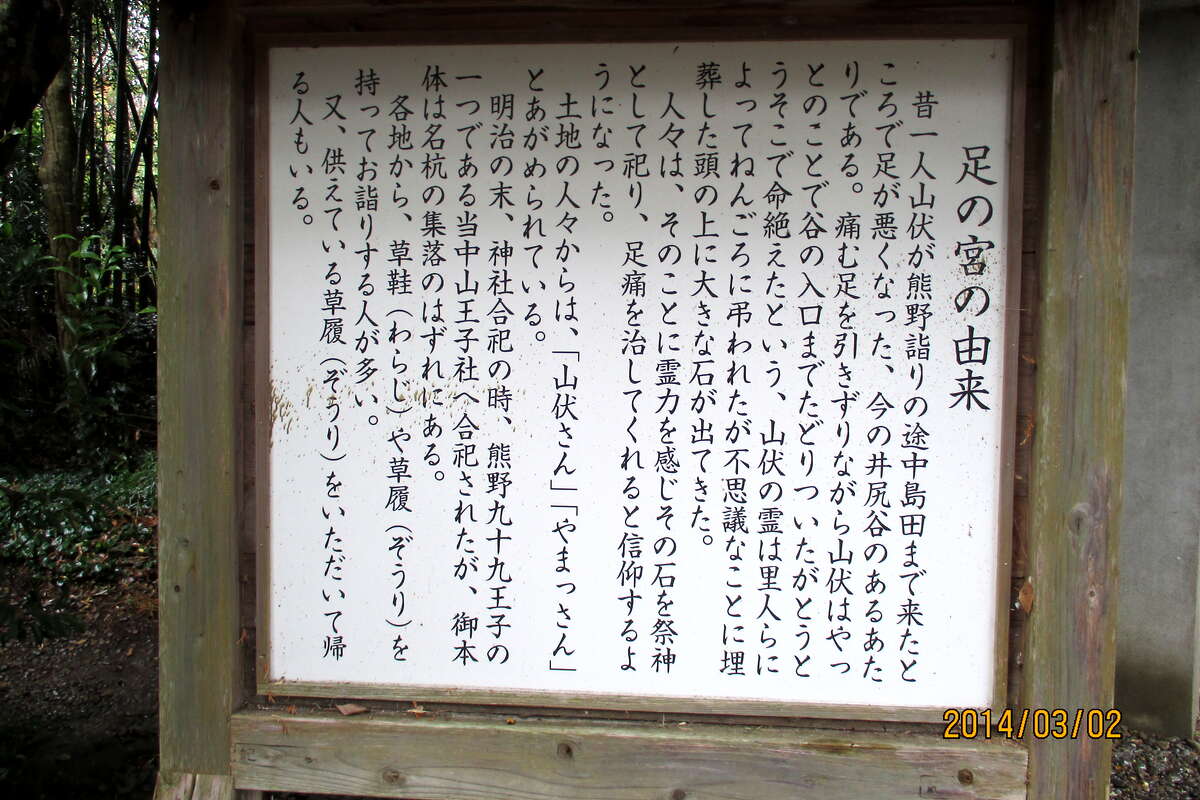 足の宮の由来
昔一人山伏が熊野詣りの途中島田まで来たと
ころで足が悪くなった、今の井尻谷のあるあた
りである。痛む足を引きずりながら山伏はやっ
とのことで谷の入口までたどりついたがとうと
うそこで命絶えたという、山伏の霊は里人らに
よってねんごろに弔われたが不思議なことに埋
葬した頭の上に大きな石が出てきた。
人々は、そのことに霊力を感じその石を祭神
として祀り、足痛を治してくれると信仰するよ
うになった。
土地の人々からは、「山伏さん」「やまっさん」
とあがめられている。
明治の末、神社合祀の時、熊野九十九王子の
一つである当中山王子社へ合祀されたが、御本
体は名杭の集落のはずれにある。
各地から、草鞋（わらじ）や草履（ぞうり）を
持ってお詣りする人が多い。
又、供えている草履（ぞうり）をいただいて帰
る人もいる。
2014/03/02